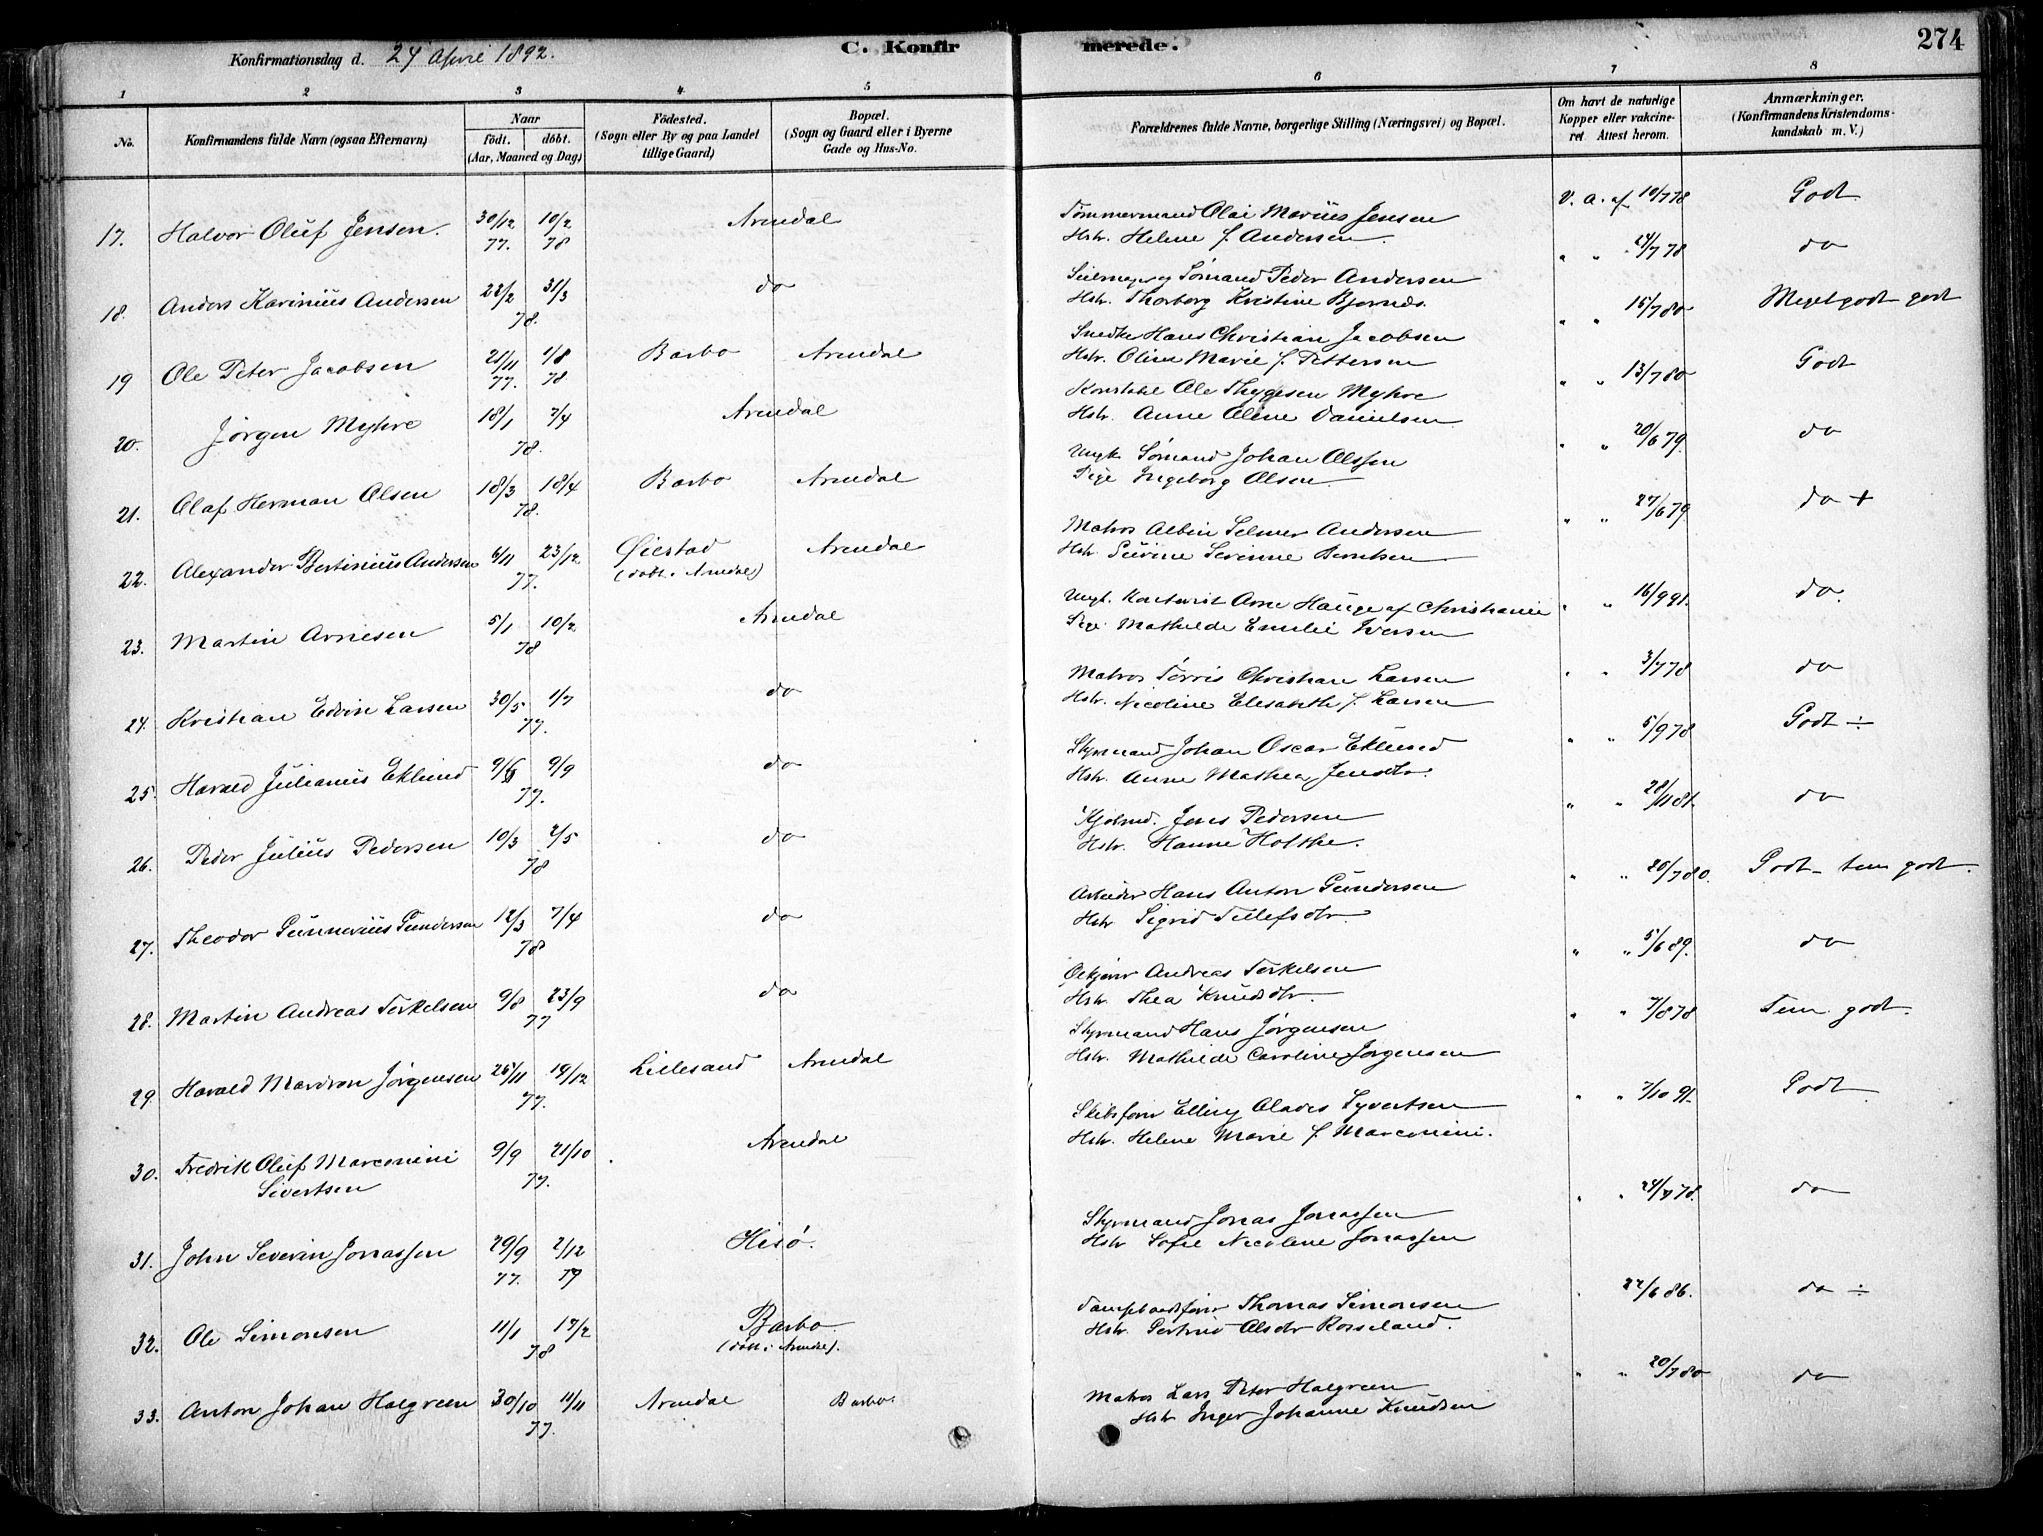 Konfirmationsdag d. 24 April 1892.
C. Konfirmerede.
274
1 2 3 4 5 6 7 8
No.
Konfirmandens fulde Navn (ogsaa Efternavn)
Naar
födt. döbt.
(Aar, Maaned og Dag)
Födested.
(Sogn eller By og paa Landet
tillige Gaard)
Bopæl.
(Sogn og Gaard eller i Byerne
Gade og Hus-No.
Forældrenes fulde Navne, borgerlige Stilling (Næringsvei) og Bopæl.
Om havt de naturlige
Kopper eller vakcine-
ret. Attest herom.
Anmærkninger.
(Konfirmandens Kristendoms-
kundskab m. V.)
17. Halvor Oluf Jensen. 30/12 77. 10/2 78 Arendal
Tømmermand Olai Marius Jensen
Hstr. Helene f. Andersen.
V. A. af 10/7 78 Godt
18. Anders Karinius Andersen 22/2 31/3 78. do
Seilmager og Sømand Peder Andersen
Hstr. Thorborg Kristine Bjornds.
" " 24/7 78 do
19 Ole Peter Jacobsen 21/11 77. 1/8 78 Barbo Arendal
Snedker Hans Christian Jacobsen
Hstr. Oline Marie f. Pettersen
" " 15/7 80 Meget godt godt
20. Jørgen Myhre 18/1 7/4 78. Arendal
Konstabel Ole Thygesen Myhre
Hstr. Anne Oline Danielsen
" " 13/7 80 Godt
21. Olaf Herman Olsen 18/3 18/4 78. Barbo Arendal
Ungk. Sømand Johan Olssen
Pige Ingeborg Olsen
" " 20/6 79. do
22. Alexander Bertinius Andersen 6/11 23/12 77. Øiestad Arendal
(døbt i Arendal)
Matros Albin Selmer Andersen
Hstr Severine Berntsen
" " 27/6 79 do +
23. Martin Arnesen 5/1 10/2 78 Arendal
Ungk. Kontorist Arne Hauge af Christiania
Pige Mathilde Emilie Iversen
" " 16/9 91. do.
24. Kristian Edvin Larsen 30/5 1/7 77. do
Matros Tørris Christian Larsen
Hstr. Nicoline Elisabeth f. Larsen
" " 3/7 78 do
25. Harald Julianus Eklund 9/6 9/9 77. do
Styrmand Johan Oscar Eklund
Hstr. Anne Mathea Jensdtr.
" " 5/9 78 Godt ÷
26. Peder Julius Pedersen 10/3 2/5 78 do
Jens Pedersen
Hstr. Hanne Holthe.
" " 28/11 81. do
27. Theodor Gunnerius Gundersen 12/3 7/4 78 do
Arbeider Hans Anton Gundersen
Hstr Sigrid Tellefsdtr
" " 20/7 80. Godt - tem godt.
28. Martin Andreas Terkelsen 9/8 23/9 77 do
Andreas Terkelsen
Hstr. Thea Knudsdtr.
" " 5/6 89. do
29. Harald Jørgensen 25/11 19/12 77. Lillesand Arendal
Styrmand Hans Jørgensen
Hstr. Mathilde Caroline Jørgensen
" " 7/8 78 Tem godt.
30. Fredrik Oluf Marconini 9/9 21/10 77. Arendal
Sivertsen
Skibsfører Elling Olaves Syvertsen
Hstr. Helene Marie f. Marconini.
" " 7/10 91. Godt
31. John Severin Jonassen 29/9 77. 2/12 79 Hisø.
Styrmand Jonas Jonassen
Hstr Sofie Nicoline Jonassen
" " 24/7 78. do
32. Ole Simonsen 11/1 17/2 78 Barbo
(døbt i Arendal).
Dampbaadsfører Thomas Simonsen
Hstr. Gertrud Olsdtr Rosseland.
" 22/6 86. do ÷
33. Anton Johan Halgreen 30/10 11/11 77. Arendal Barbo.
Matros Lars Peter Halgreen
Hstr Inger Johanne Knudsen
" " 20/7 80 do